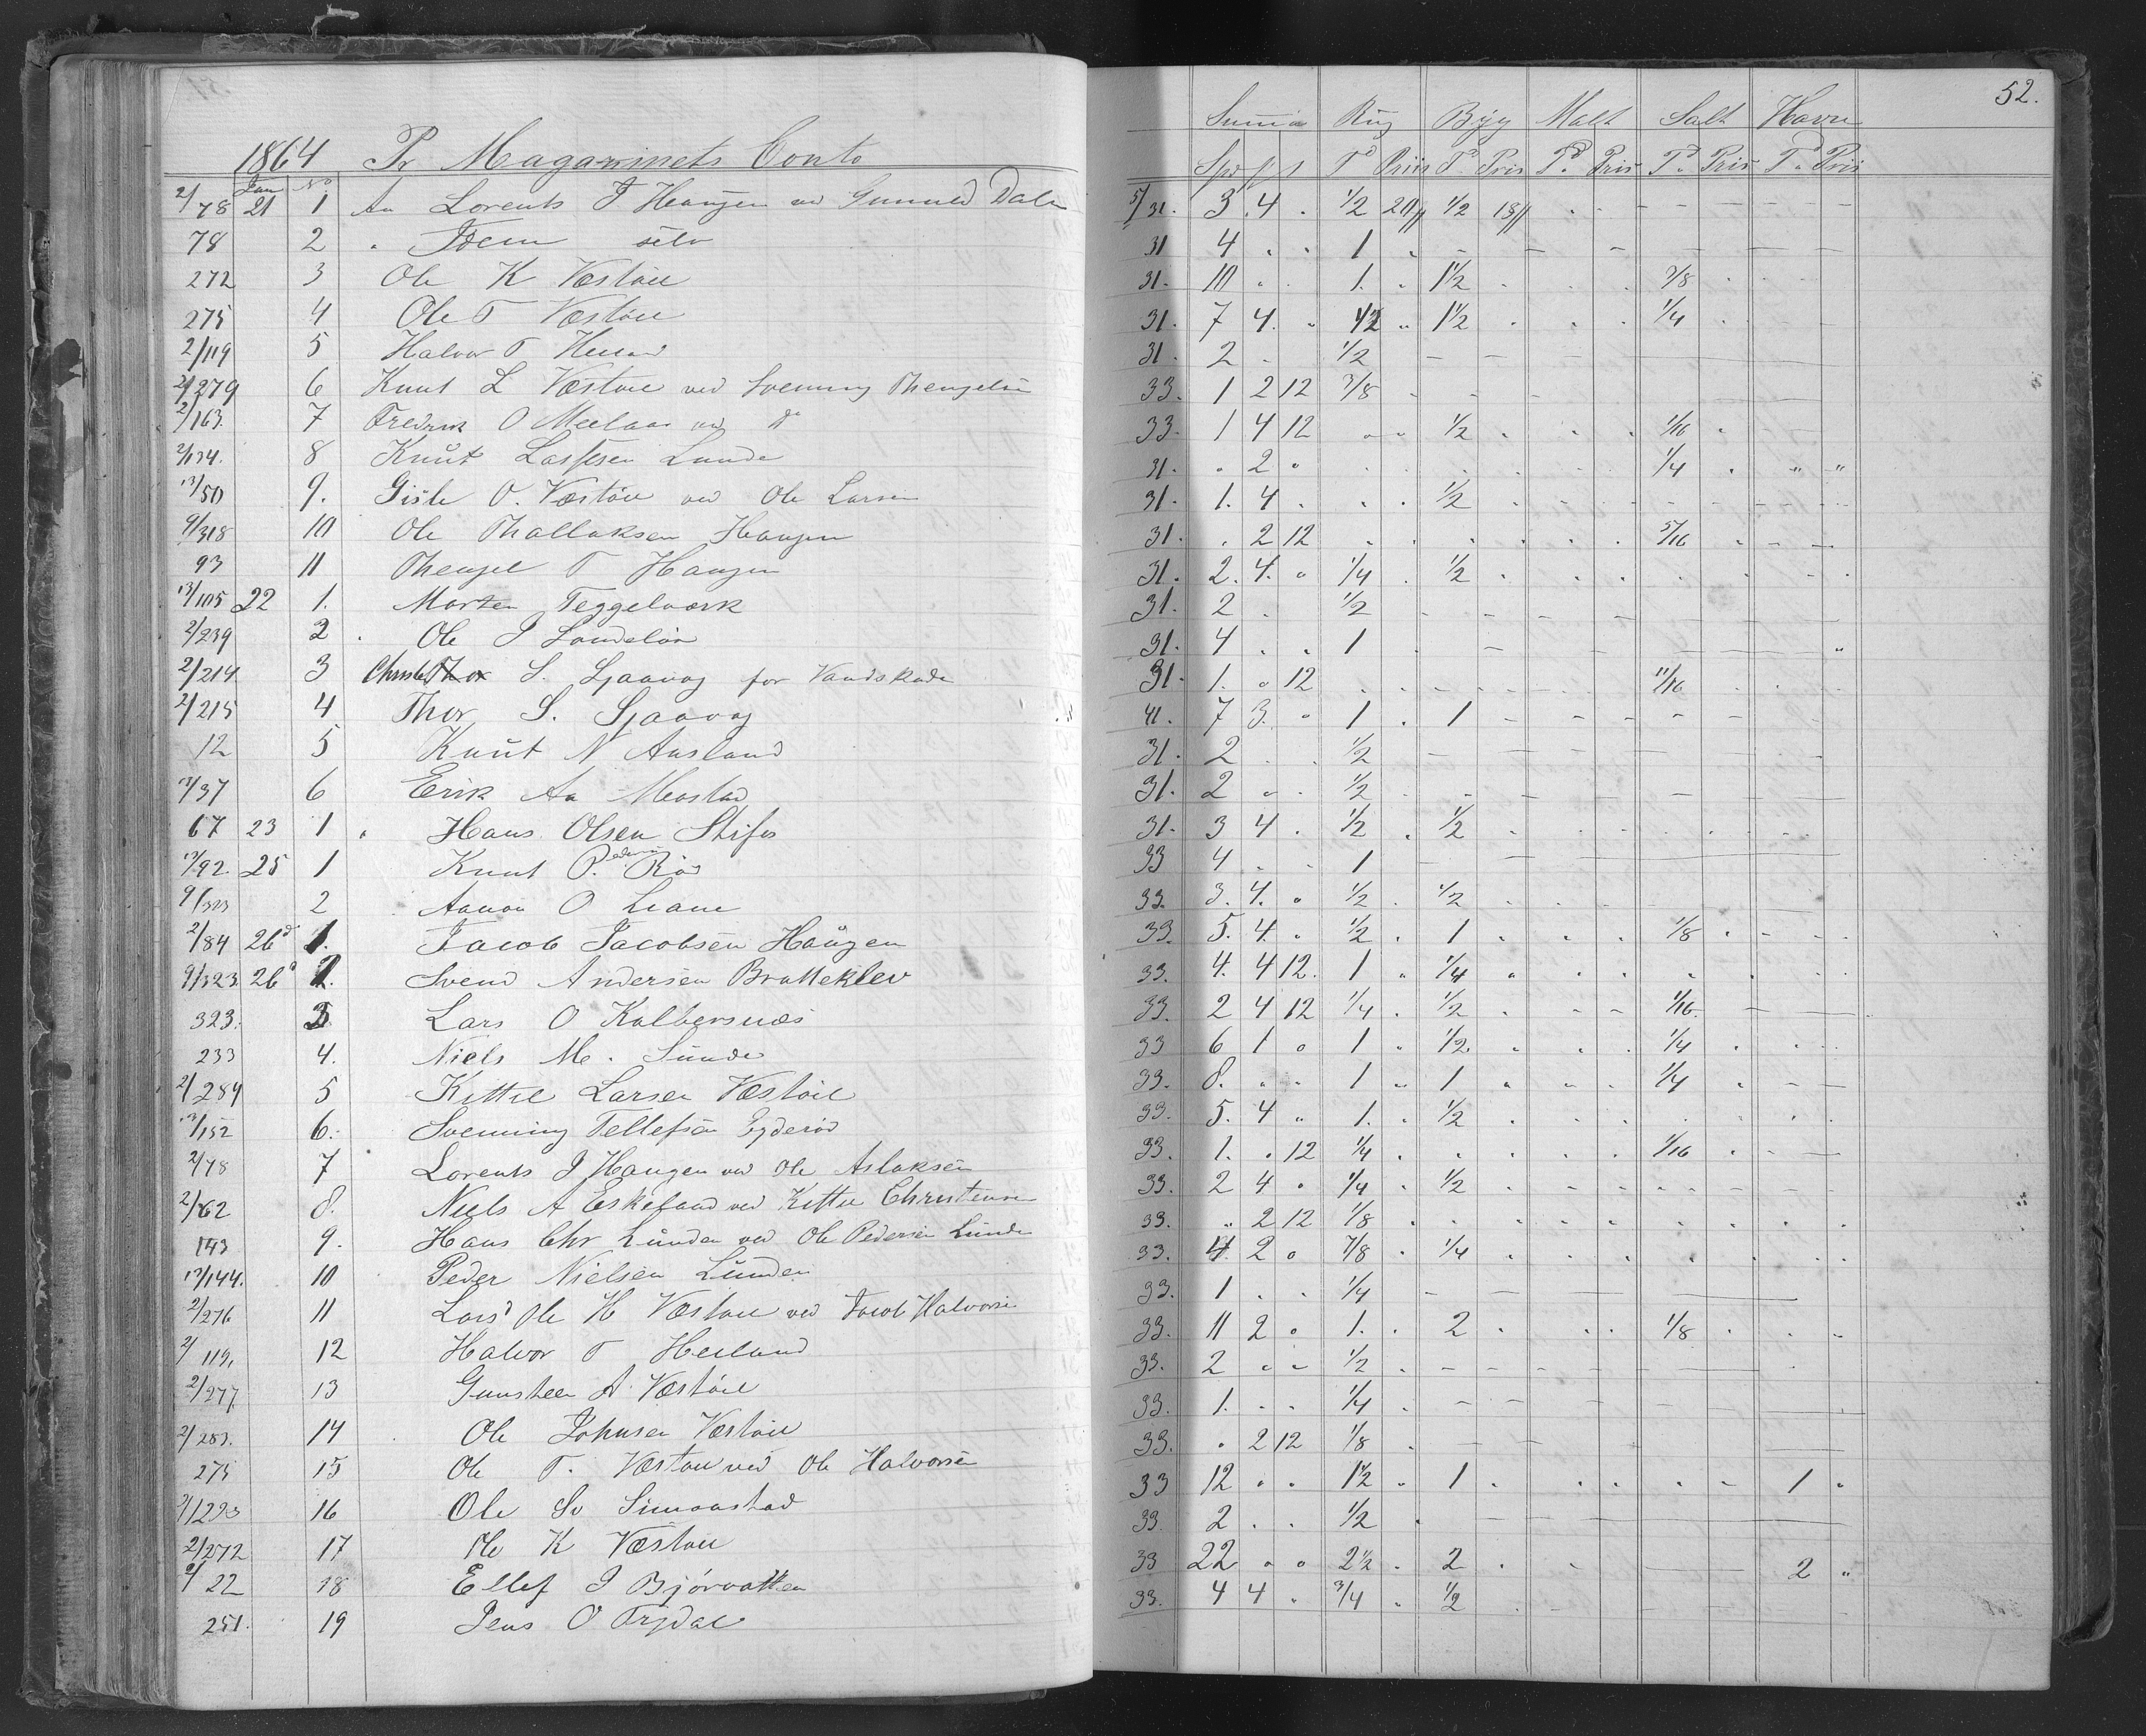 52.
1864 Pr Magazinets Conto
Summa Rug Byg Malt Salt Havre
Jan No Spd ß s Td Priis Td Pris Td Pris Td Pris Td Pris
2/78 21 1 An Lorents J Haugen ved Gunuld Dalen 5/31. 3 4 . 1/2 20ß 1/2 18ß
78 2 " Idem selv 31 4 . . 1
272 3 Ole K Vestøul 31. 10 . . 1. 1 1/2 3/8
275 4 Ole T Vestøul 31. 7 4. . 1/2 1 1/2 1/4
2/119 5 Halvor T Heiland 31. 2 . 1/2
2/279 6 Knut L Vestøul ved Svenning Thengelsen 33. 1 2 12 3/8
2/163. 7 Fredrik O Meelaas ved do 33. 1 4 12 1/2 1/16
2/134. 8 Knut Lassesen Lunde 31. . 2 . 1/4
13/50 9. Gisle O. Vestøul ved Ole Larsen 31. 1. 4 . 1/2
9/318 10 Ole Thallaksen Haugen 31. . 2 12 5/16
93 11 Thengel T Haugen 31. 2. 4. . 1/4 1/2
13/105 22 1. Morten Teggelværk 31. 2 . 1/2
2/239 2 . Ole J 31. 4 . . 1
2/214 3 Christe S. Sjaavaag for Vandskade 31. 1. . 12 11/16
2/215 4 Thor S. Sjaavag 41. 7 3. . 1 . 1
12 5 Knut N Ausland 31. 2 . . 1/2
13/37 6 Erik Aa Mostad 31. 2 . . 1/2
67 23 1 " Hans Olsen Stifos 31. 3 4 . 1/2 1/2
13/92. 25 1 Knut Pedersen Rød 33 4 . . 1
9/323 2 Aanon O Leane 33. 3. 4. . 1/2 1/2
2/84 26d 1. Jacob Jacobsen Haugen 33. 5. 4. . 1/2 1 1/8
9/323 26d 2. Svend Andersen Bratteklev 33. 4. 4 12. 1 1/4
323. 3 Lars O Kalbersnæs 33. 2 4 12 1/4 1/2 1/16.
233 4. Niels M. Sunde 33 6 1 . 1 1/2. 1/4
2/284 5 Kittil Larsen Vestøul 33. 8. . . 1 1 1/4
13/152 6. Svenning Tellefsen Eyderød 33. 5. 4 . 1. 1/2
2/78 7 Lorents J Haugen ved Ole Aslaksen 33. 1. . 12 1/4 1/16
2/62 8. Niels A Eskeland ved Kittil Christensen 33. 2 4 . 1/4 1/2
143 9. Hans Chr Lunden ved Ole Pedersen Lunde 33. . 2 12 1/8
13/144. 10 Peder Nielsen Lunden 33. 4 2 . 7/8 1/4
2/276 11 Lars Ole H Vestøul ved Jacob Halvorsen 33. 1 . . 1/4
2/119, 12 Halvor T Heiland 33. 11 2 . 1. 2 1/8
2/277 13 Gunsteen A Vestøul 33. 2 . . 1/2
2/283. 14 Ole Johnsen Vestøul 33. 1. . . 1/4
275 15 Ole T. Vestøul ved Ole Halvorsen 33. . 2 12 1/8
2/1223 16 Ole Sv Simonstad 33 12 . . 1 1/2 1 1
2/272 17 Ole K Vestøul 33. 2 . . 1/2
9/22 18 Ellef J Bjørvatten 33 22 . . 2 1/2 2 2
251. 19 Jens O Frydal 33. 4 4 . 3/4 1/2